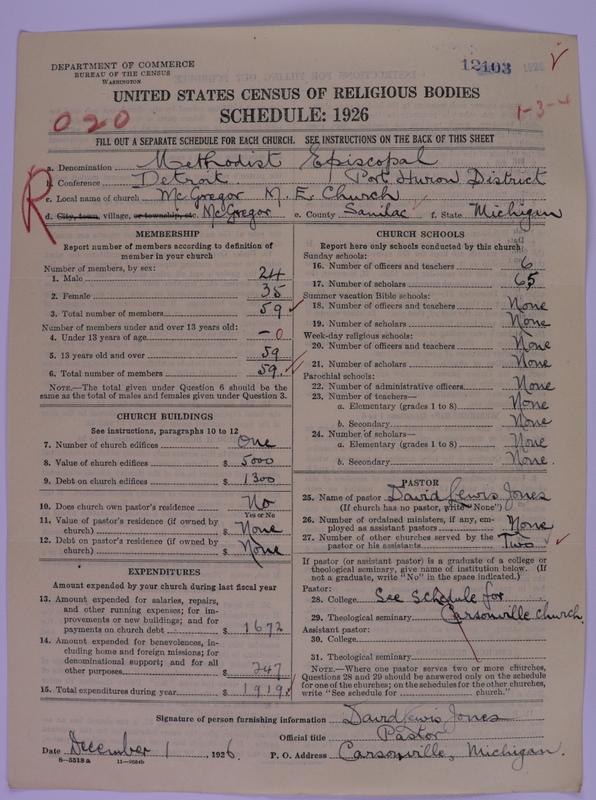 DEPARTMENT OF COMMERCE
BUREAU OF THE CENSUS
WASHINGTON
12103 1926
UNITED STATES CENSUS OF RELIGIOUS BODIES
SCHEDULE: 1926
020
1-3-4
FILL OUT A SEPARATE SCHEDULE FOR EACH CHURCH. SEE INSTRUCTIONS ON THE BACK OF THIS SHEET
R
a. Denomination Methodist Episcopal
b. Conference Detroit Port Huron District
c. Local name of church McGregor M. E. Church
d. City, town, village, or township, etc McGregor e. County Sanilac f. State Michigan
MEMBERSHIP
Report number of members according to definition of
member in your church
Number of members, by sex:
1. Male 24
2. Female 35
3. Total number of members 59
Number of members under and over 13 years old:
4. Under 13 years of age - 0
5. 13 years old and over 59
6. Total number of members 59.
NOTE.—The total given under Question 6 should be the
same as the total of males and females given under Question 3.
CHURCH BUILDINGS
See instructions, paragraphs 10 to 12
7. Number of church edifices One
8. Value of church edifices $ 5000
9. Debt on church edifices $ 1300
10. Does church own pastor's residence? No
Yes or No
11. Value of pastor's residence (if owned by
church) $ None
12. Debt on pastor's residence (if owned by
church) $ None
EXPENDITURES
Amount expended by your church during last fiscal year
13. Amount expended for salaries, repairs,
and other running expenses; for im-
provements or new buildings; and for
payments on church debt $ 1672
14. Amount expended for benevolences, in-
cluding home and foreign missions; for
denominational support; and for all
other purposes $ 247
15. Total expenditures during year $ 1919
CHURCH SCHOOLS
Report here only schools conducted by this church
Sunday schools:
16. Number of officers and teachers 6
17. Number of scholars 65
Summer vacation Bible schools:
18. Number of officers and teachers None
19. Number of scholars None
Week-day religious schools:
20. Number of officers and teachers None
21. Number of scholars None
Parochial schools:
22. Number of administrative officers None
23. Number of teachers—
a. Elementary (grades 1 to 8) None
b. Secondary None
24. Number of scholars—
a. Elementary (grades 1 to 8) None
b. Secondary None.
PASTOR
25. Name of pastor David Lewis Jones
(If church has no pastor, write "None")
26. Number of ordained ministers, if any, em-
ployed as assistant pastors None
27. Number of other churches served by the
pastor or his assistants Two
If pastor (or assistant pastor) is a graduate of a college or
theological seminary, give name of institution below. (If
not a graduate, write "No" in the space indicated.)
Pastor:
28. College See Schedule for
29. Theological seminary Carsonville church,
Assistant pastor:
30. College
31. Theological seminary
NOTE.—Where one pastor serves two or more churches,
Questions 28 and 29 should be answered only on the schedule
for one of the churches; on the schedules for the other churches,
write "See schedule for church."
Signature of person furnishing information David Lewis Jones
Official title Pastor
Date December 1, 1926. P. O. Address Carsonville, Michigan.
8—5518 a